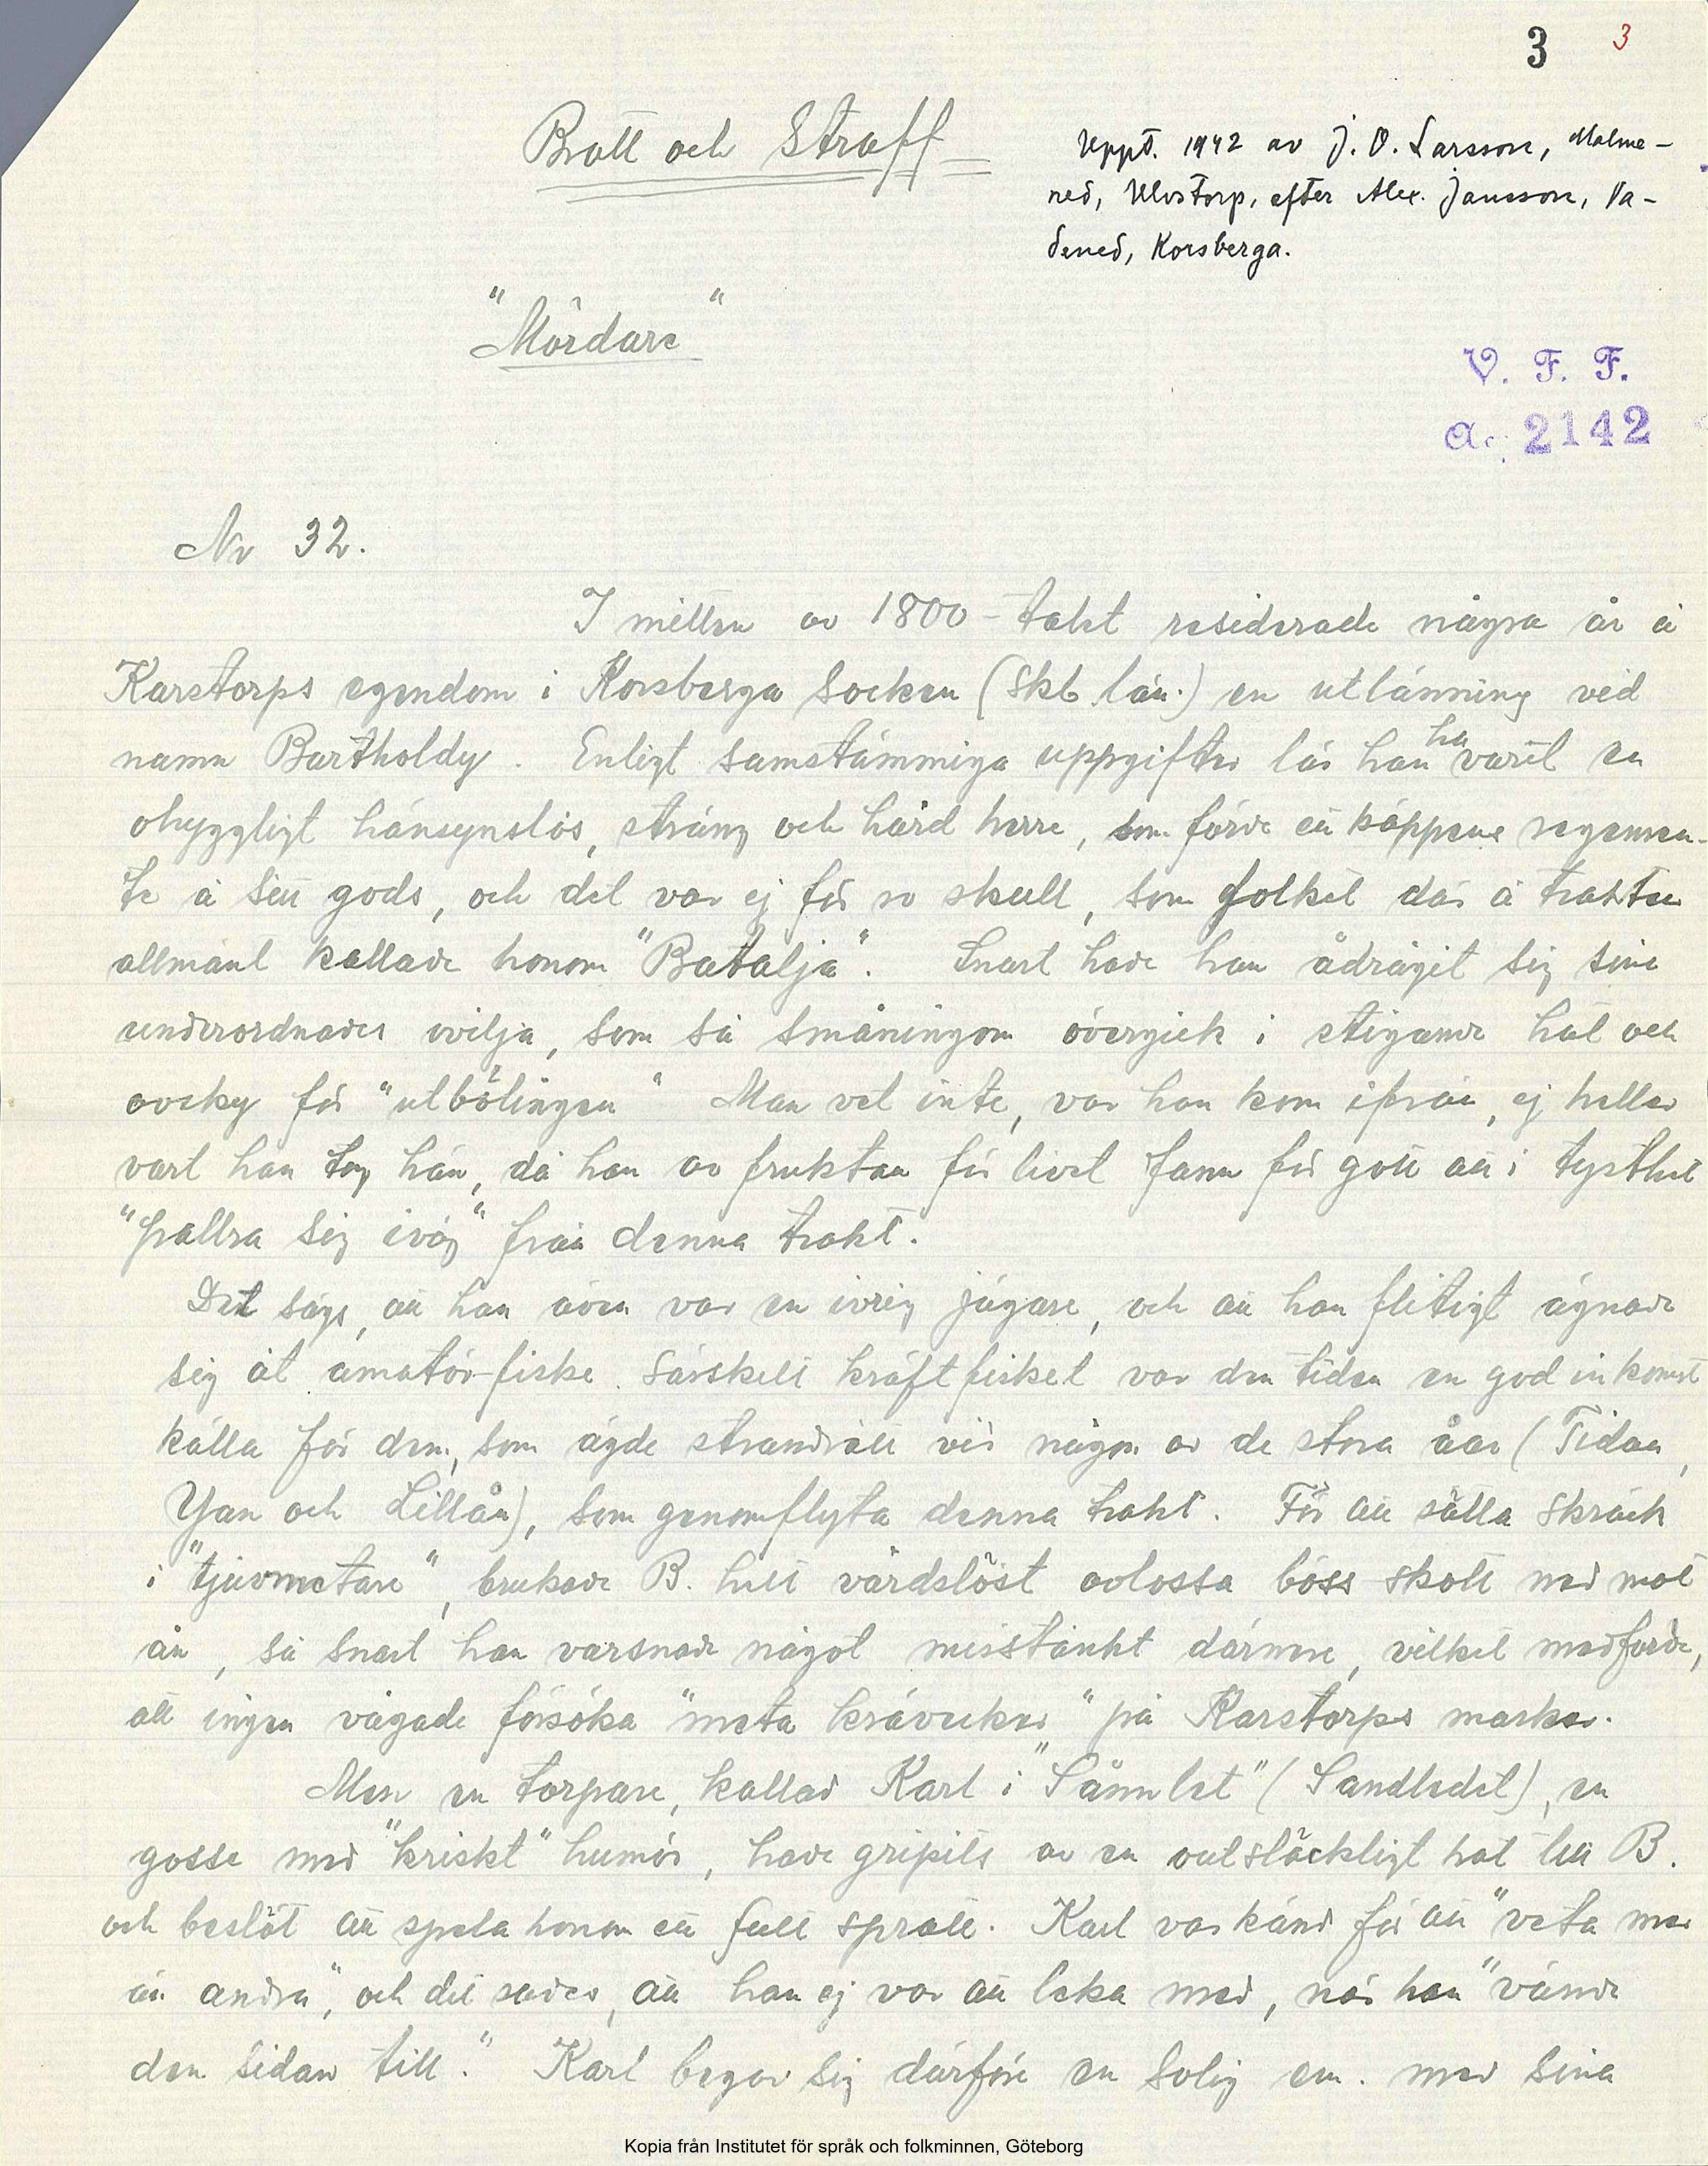 3 3
Brott och Straff
Uppt. 1942 av J. O. Larsson, Malme-
ned, Ulvstorp, efter Alex. Jansson, Va-
dened, Korsberga.
"Mördare"
V. F. F.
a. 2142
Nr 32.
I mitten av 1800-talet residerade några år å
Karstorps egendom i Korsberga socken (Skb. län.) en utlänning vid
namn Bartholdy. Enligt samstämmiga uppgifter lär han ha varit en
ohyggligt hänsynslös, sträng och hård herre, som förde ett käppens regemen-
te å sitt gods, och det var ej för ro skull, som folket där å trakten
allmänt kallade honom "Batalja". Snart hade han ådragit sig sina
underordnades ovilja, som så småningom övergick i stigande hat och
avsky för "utbölingen" Man vet inte, var han kom ifrån, ej heller
vart han tog hän, då han av fruktan för livet fann för gott att i tysthet
"pallra sig iväg" från denna trakt.
Det sägs, att han även var en ivrig jägare, och att han flitigt ägnade
sig åt amatör-fiske. Särskilt kräftfisket var den tiden en god inkomst
källa för dem, som ägde strandrätt vid någon av de stora åar (Tidan,
Yan och Lillån), som genomflyta denna trakt. För att sätta skräck
i "tjuvmetare", brukade B. helt vårdslöst avlossa böss skott ned mot
ån, så snart han varsnade något misstänkt därnere, vilket medförde,
att ingen vågade försöka "meta krävveker" på Karstorps marker.
Men en torpare, kallad Karl i "Sännlet" (Sandledet), en
gosse med "kriskt" humör, hade gripits av en outsläckligt hat till B.
och beslöt att spela honom ett fult spratt. Karl var känd för att "veta mer
än andra", och det sades, att han ej var att leka med, när han "vände
den sidan till." Karl begav sig därföre en solig em. med sina
Kopia från Institutet för språk och folkminnen, Göteborg